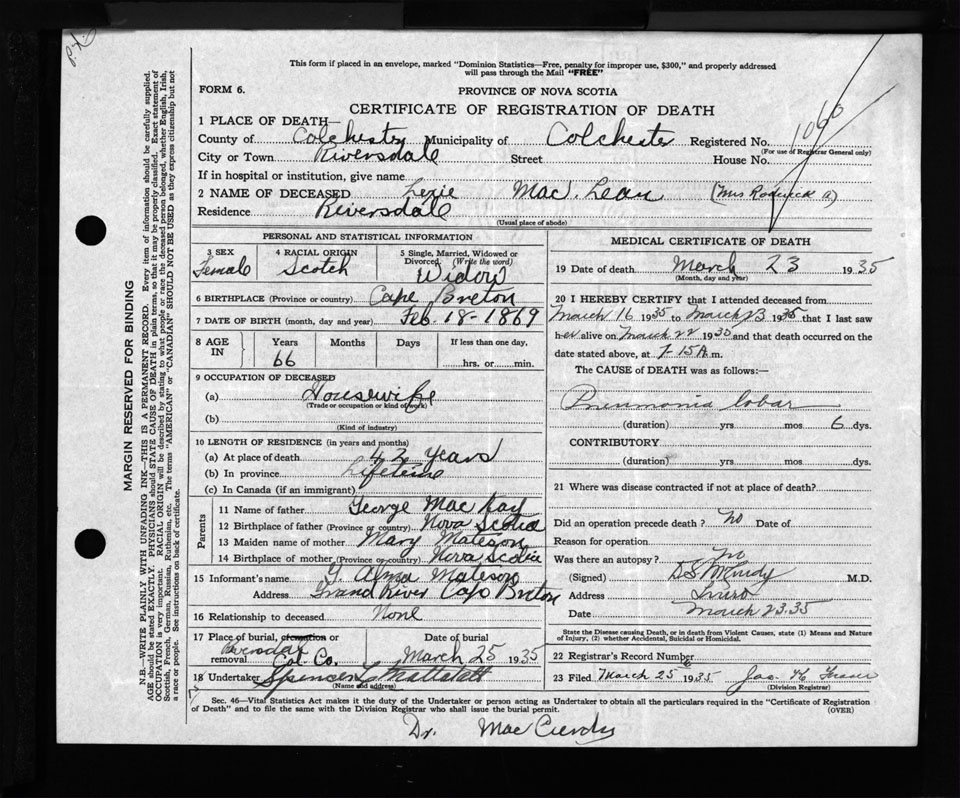 This form if placed in an envelope, marked "Dominion Statistics—Free, penalty for improper use, $300," and properly addressed
will pass through the Mail "FREE"
FORM 6.
PROVINCE OF NOVA SCOTIA
CERTIFICATE OF REGISTRATION OF DEATH
1060
1 PLACE OF DEATH—
County of Colchester Municipality of Colchester Registered No.
(For use of Registrar General only)
City or Town Riversdale Street House No.
If in hospital or institution, give name
2 NAME OF DECEASED Lexie MacLean (Mrs Roderick A)
Residence Riversdale
(Usual place of abode)
PERSONAL AND STATISTICAL INFORMATION
3 SEX 4 RACIAL ORIGIN 5 Single, Married, Widowed or
Divorced. (Write the word)
Female Scotch Widow
6 BIRTHPLACE (Province or country) Cape Breton
7 DATE OF BIRTH (month, day and year) Feb. 18-1869
8 AGE IN Years Months Days If less than one day,
66 hrs. or min.
9 OCCUPATION OF DECEASED
(a) Housewife
(Trade or occupation or kind of work)
(b)
(Kind of industry)
10 LENGTH OF RESIDENCE (in years and months)
(a) At place of death 42 years
(b) In province Lifetime
(c) In Canada (if an immigrant)
Parents
11 Name of father George MacKay
12 Birthplace of father (Province or country) Nova Scotia
13 Maiden name of mother Mary Mateson
14 Birthplace of mother (Province or country) Nova Scotia
15 Informant's name Alma Mateson
Address Grand River Cape Breton
16 Relationship to deceased None
17 Place of burial, cremation or removal Riversdale Col. Co.
Date of burial March 25 1935
18 Undertaker Spencer L
(Name and address)
MEDICAL CERTIFICATE OF DEATH
19 Date of death March 23 1935
(Month, day and year)
20 I HEREBY CERTIFY that I attended deceased from
March 16 1935 to March 23 1935 that I last saw
her alive on March 22 1935 and that death occurred on the
date stated above, at 7-15 A m.
The CAUSE of DEATH was as follows:—
Pneumonia lobar
(duration) yrs mos 6 dys.
CONTRIBUTORY
(duration) yrs mos dys.
21 Where was disease contracted if not at place of death?
Did an operation precede death? No Date of
Reason for operation
Was there an autopsy? No
(Signed) M.D.
Address Truro
Date March 23.35
State the Disease causing Death, or in death from Violent Causes, state (1) Means and Nature
of Injury, (2) whether Accidental, Suicidal or Homicidal.
22 Registrar's Record Number
23 Filed March 25 1935
(Division Registrar)
Sec. 46—Vital Statistics Act makes it duty of the Undertaker or person acting as Undertaker to obtain all the particulars required in the "Certificate of Registration
of Death" and to file the same with the Division Registrar who shall issue the burial permit.
(OVER)
Dr. Mac Curdy
MARGIN RESERVED FOR BINDING
N.B.—WRITE PLAINLY WITH UNFADING INK—THIS IS A PERMANENT RECORD. Every item of information should be carefully supplied.
AGE should be stated EXACTLY. PHYSICIANS should STATE CAUSE OF DEATH in plain terms, so that it may be properly classified. Exact statement of
OCCUPATION is very important. RACIAL ORIGIN will be described by stating to what people or race the deceased person belonged, whether English, Irish,
Scottish, French, German, Russian, Ruthenian, etc. The terms "AMERICAN" or "CANADIAN" SHOULD NOT BE USED as they express citizenship but not
a race or people. See instructions on back of certificate.